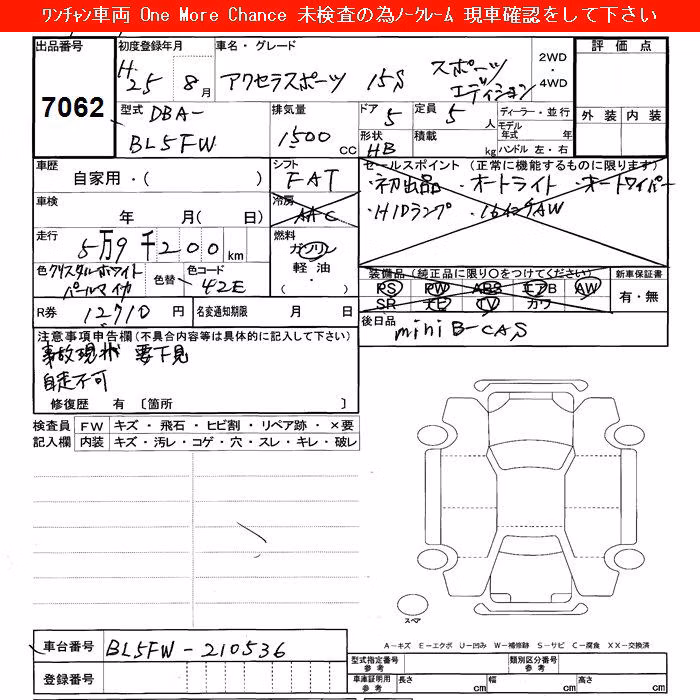 ﾜﾝﾁｬﾝ車両 One More Chance 未検査の為ﾉｰｸﾚｰﾑ 現車確認をして下さい
出品番号 7062
初度登録年月 H.25 年 8月
車名・グレード アクセラスポーツ 15S スポーツエディション
2WD・4WD
型式 DBA-BL5FW
排気量 1500 CC
ドア 5
定員 5人
ディーラー・並行
形状 HB
積載 kg
モデル年式 年
ハンドル 左・右
評価点
外装 内装
車歴 自家用・( )
シフト FAT
セールスポイント (正常に機能するものに限ります)
・初出品 ・オートライト ・オートワイパー
・HIDランプ ・16インチAW
車検 年 月( 日)
冷房 AAC
走行 5万9千200km
燃料 ガソリン
軽油・
・( )
色 クリスタルホワイトパールマイカ
色替
色コード 42E
装備品(純正品に限り○をつけてください)
PS PW ABS エアB AW
SR ナビ TV カワ
新車保証書
有・無
R券 12710 円
名変通知期限 月 日
後日品 miniB-CAS
注意事項申告欄(不具合内容等は具体的に記入して下さい)
事故現状 要下見
自走不可
修復歴 有 〔箇所 〕
検査員記入欄
FW キズ・飛石・ヒビ割・リペア跡・×要
内装 キズ・汚レ・コゲ・穴・スレ・キレ・破レ
スペア
A-キズ E-エクボ U-凹み W-補修跡 S-サビ C-腐食 XX-交換済
車台番号 BL5FW-210536
登録番号
型式指定番号 参考
類別区分番号 参考
車庫証明用 参考
長さ cm 幅 cm 高さ cm